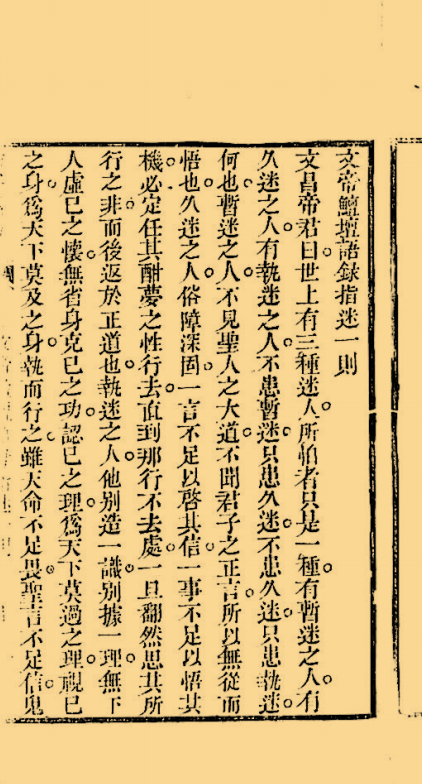 文帝鱣壇語錄指迷一則
文昌帝君曰世上有三種迷人所怕者只是一種有暫迷之人有
久迷之人有執迷之人不患暫迷只患久迷不患久迷只患執迷
何也暫迷之人不見聖人之大道不聞君子之正言所以無從而
悟也久迷之人俗障深固一言不足以啓其信一事不足以悟其
機必定任其酣夢之性行去直到那行不去處一旦翻然思其所
行之非而後返於正道也執迷之人他別造一識別據一理無下
人虛已之懷無省身克已之功認已之理爲天下莫過之理視已
之身爲天下莫及之身執而行之雖天命不足畏聖言不足信鬼